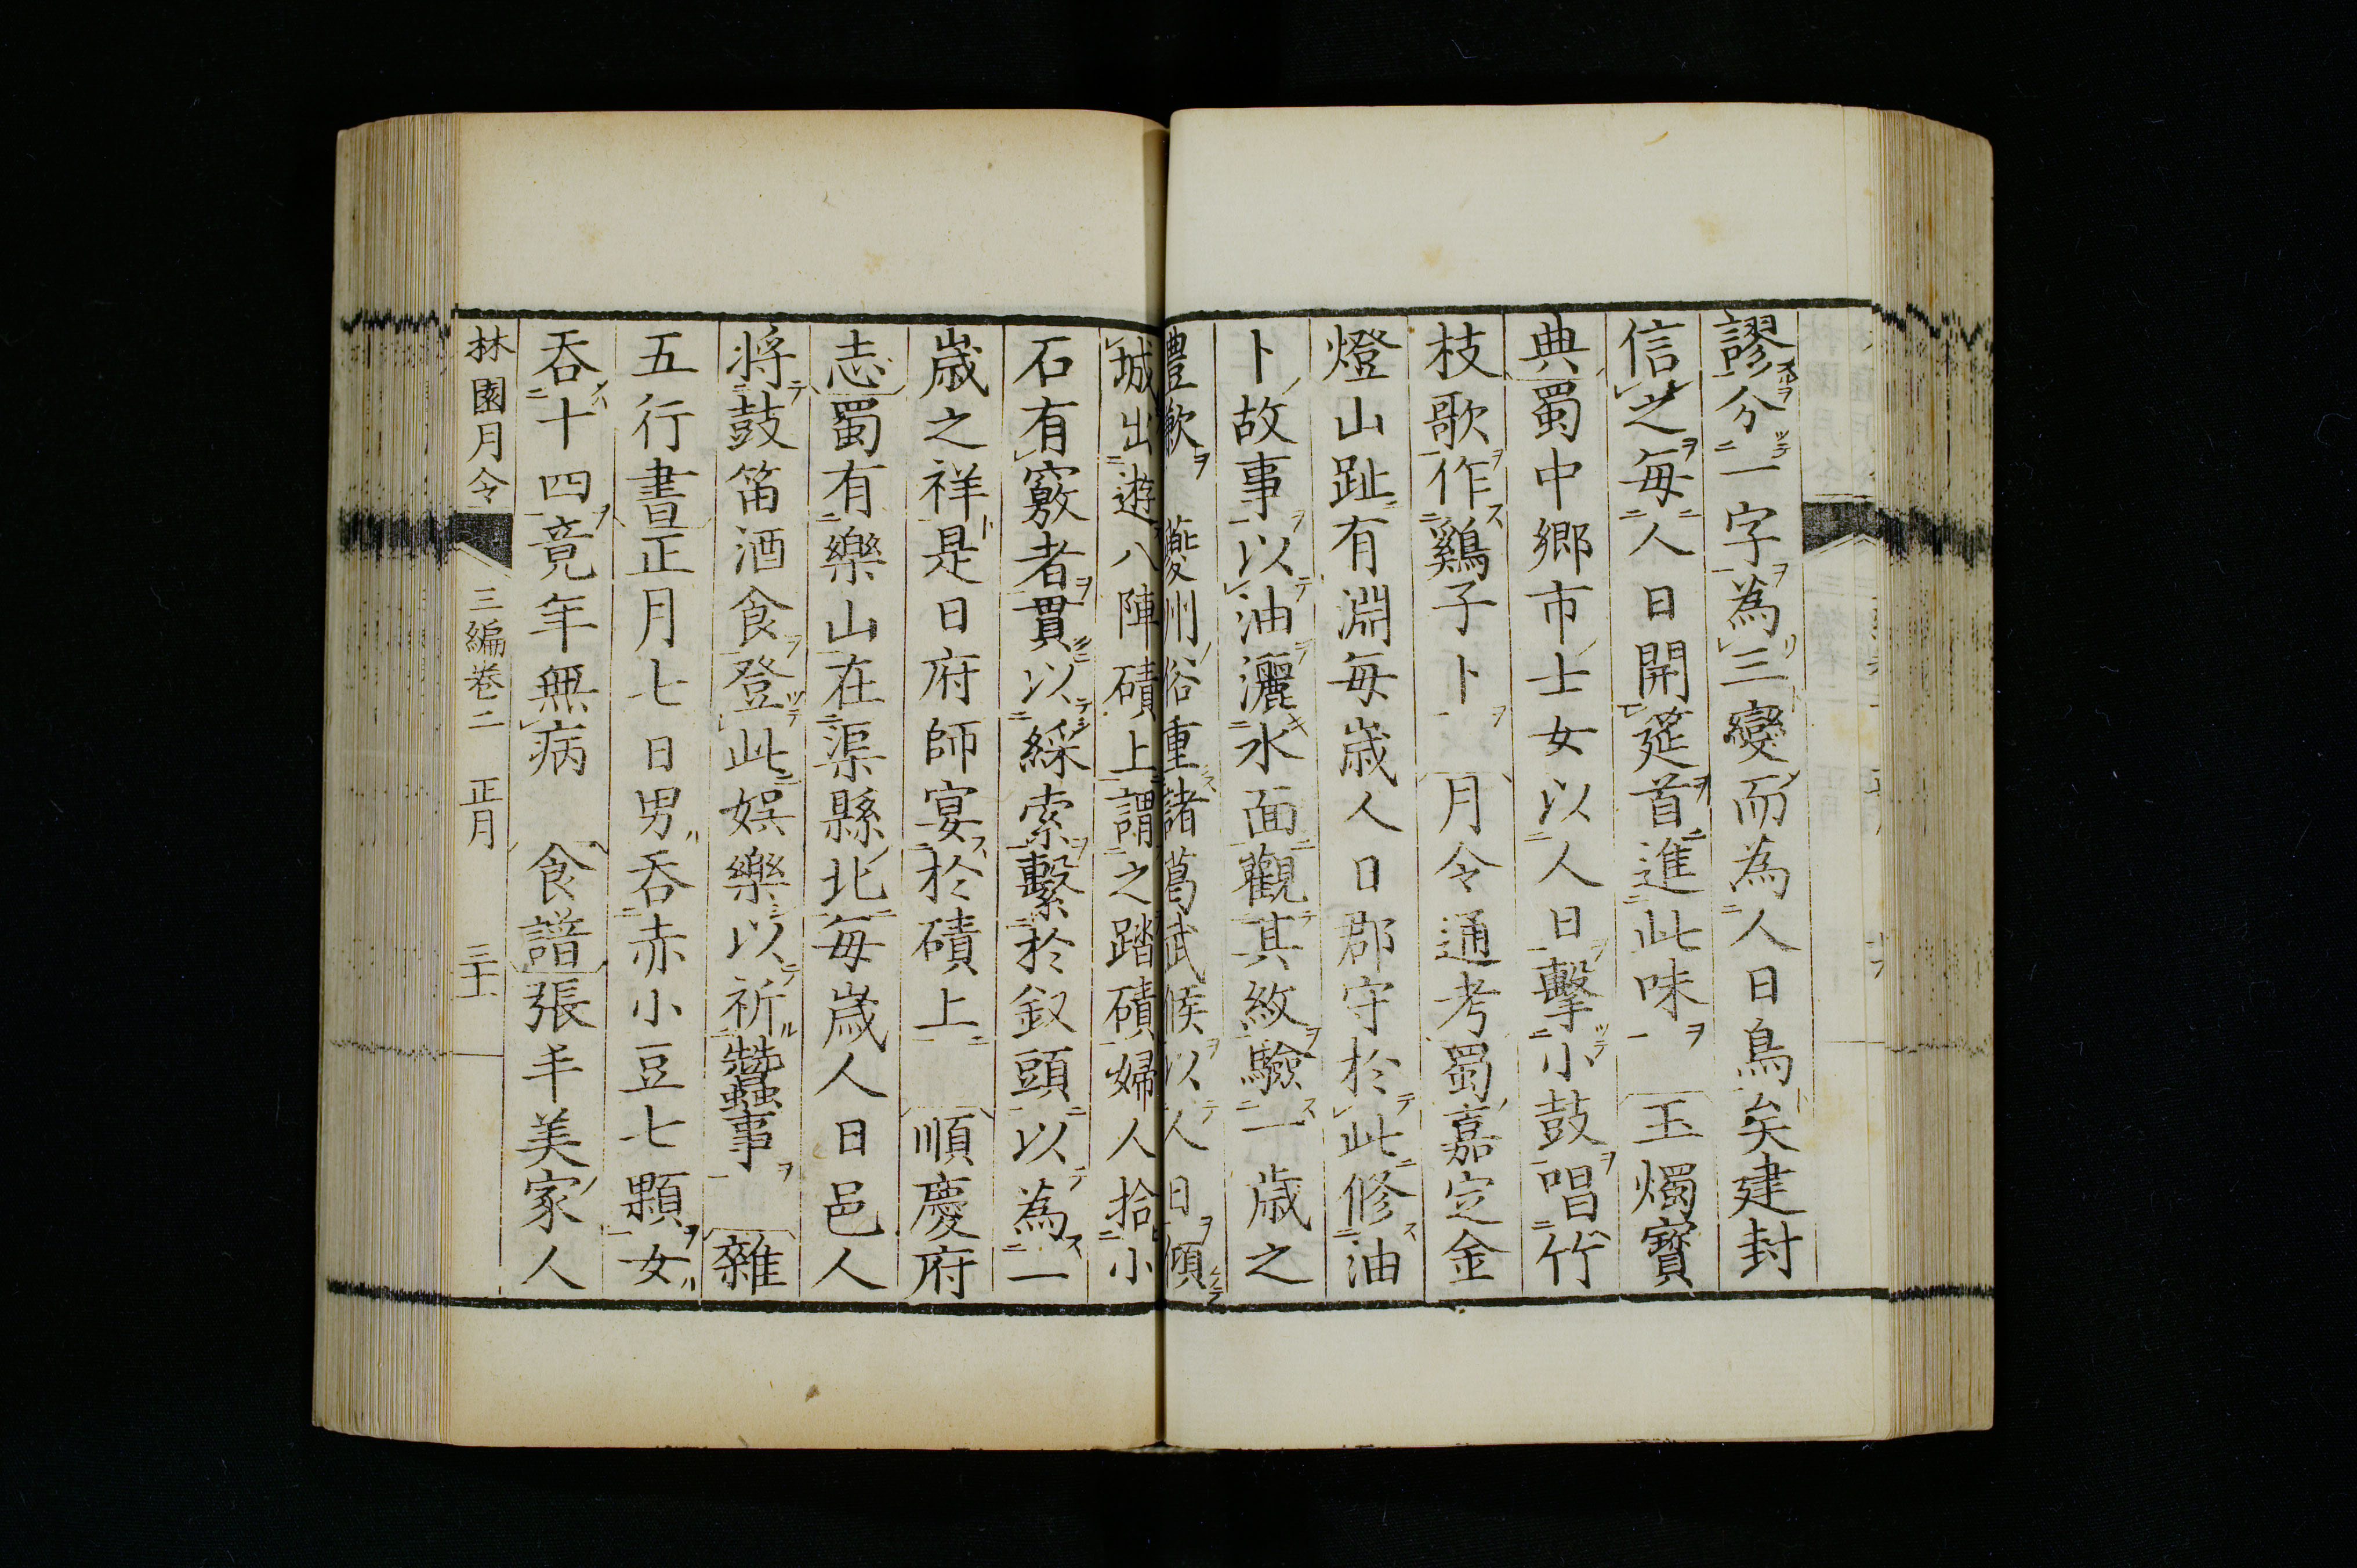 謬分一字為三變而為人日鳥矣建封
信之每人日開筵首進此味　玉燭寶
典蜀中鄉市士女以人日擊小鼓唱竹
枝歌作鷄子卜　月令通考蜀嘉定金
燈山趾有淵每歲人日郡守於此修油
卜故事以油灑水面觀其紋驗一歲之
豐歉　夔州俗重諸葛武侯以人日傾
城出遊八陣磧上謂之踏磧婦人拾小
石有竅者貫以綵索繫於釵頭以為一
歲之祥是日府師宴於磧上　順慶府
志蜀有樂山在渠縣北每歲人日邑人
將鼓笛酒食登此娯樂以祈蠶事　雜
五行書正月七日男吞赤小豆七顆女
吞十四竟年無病　食譜張手美家人
林園月令　三編卷二　正月